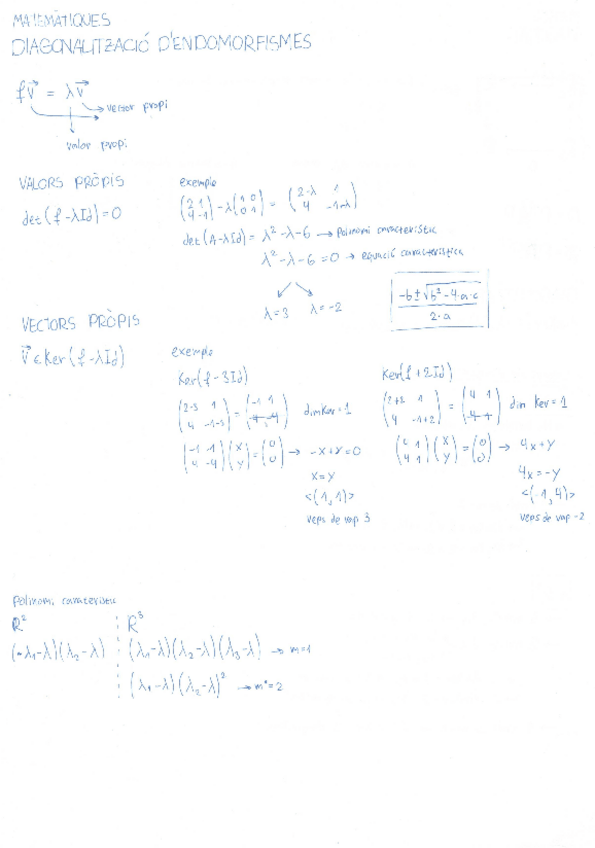 MATEMÀTIQUES
DIAGONALITZACIÓ D'ENDOMORFISMES
f v⃗ = λ v⃗
→ vector propi
valor propi
VALORS PRÒPIS
det(f-λId)=0
exemple
(2 1; 4 -1) - λ(1 0; 0 1) = (2-λ 1; 4 -1-λ)
det(A-λId) = λ² - λ - 6 → Polinomi característic
λ² - λ - 6 = 0 → equació característica
λ=3 λ=-2
-b ± √(b² - 4·a·c) / 2·a
VECTORS PRÒPIS
v⃗ ∈ Ker(f-λId)
exemple
Ker(f-3Id)
(2-3 1; 4 -1-3) = (-1 1; 4 -4) dimKer=1
(-1 1; 4 -4)(x; y) = (0; 0) → -x+y=0
x=y
<(1,1)>
veps de vap 3
Ker(f+2Id)
(2+2 1; 4 -1+2) = (4 1; 4 1) dim Ker=1
(4 1; 4 1)(x; y) = (0; 0) → 4x+y
4x=-y
<(-1,4)>
veps de vap -2
Polinomi característic
R²
(λ₁-λ)(λ₂-λ)
R³
(λ₁-λ)(λ₂-λ)(λ₃-λ) → m=1
(λ₁-λ)(λ₂-λ)² → m=2